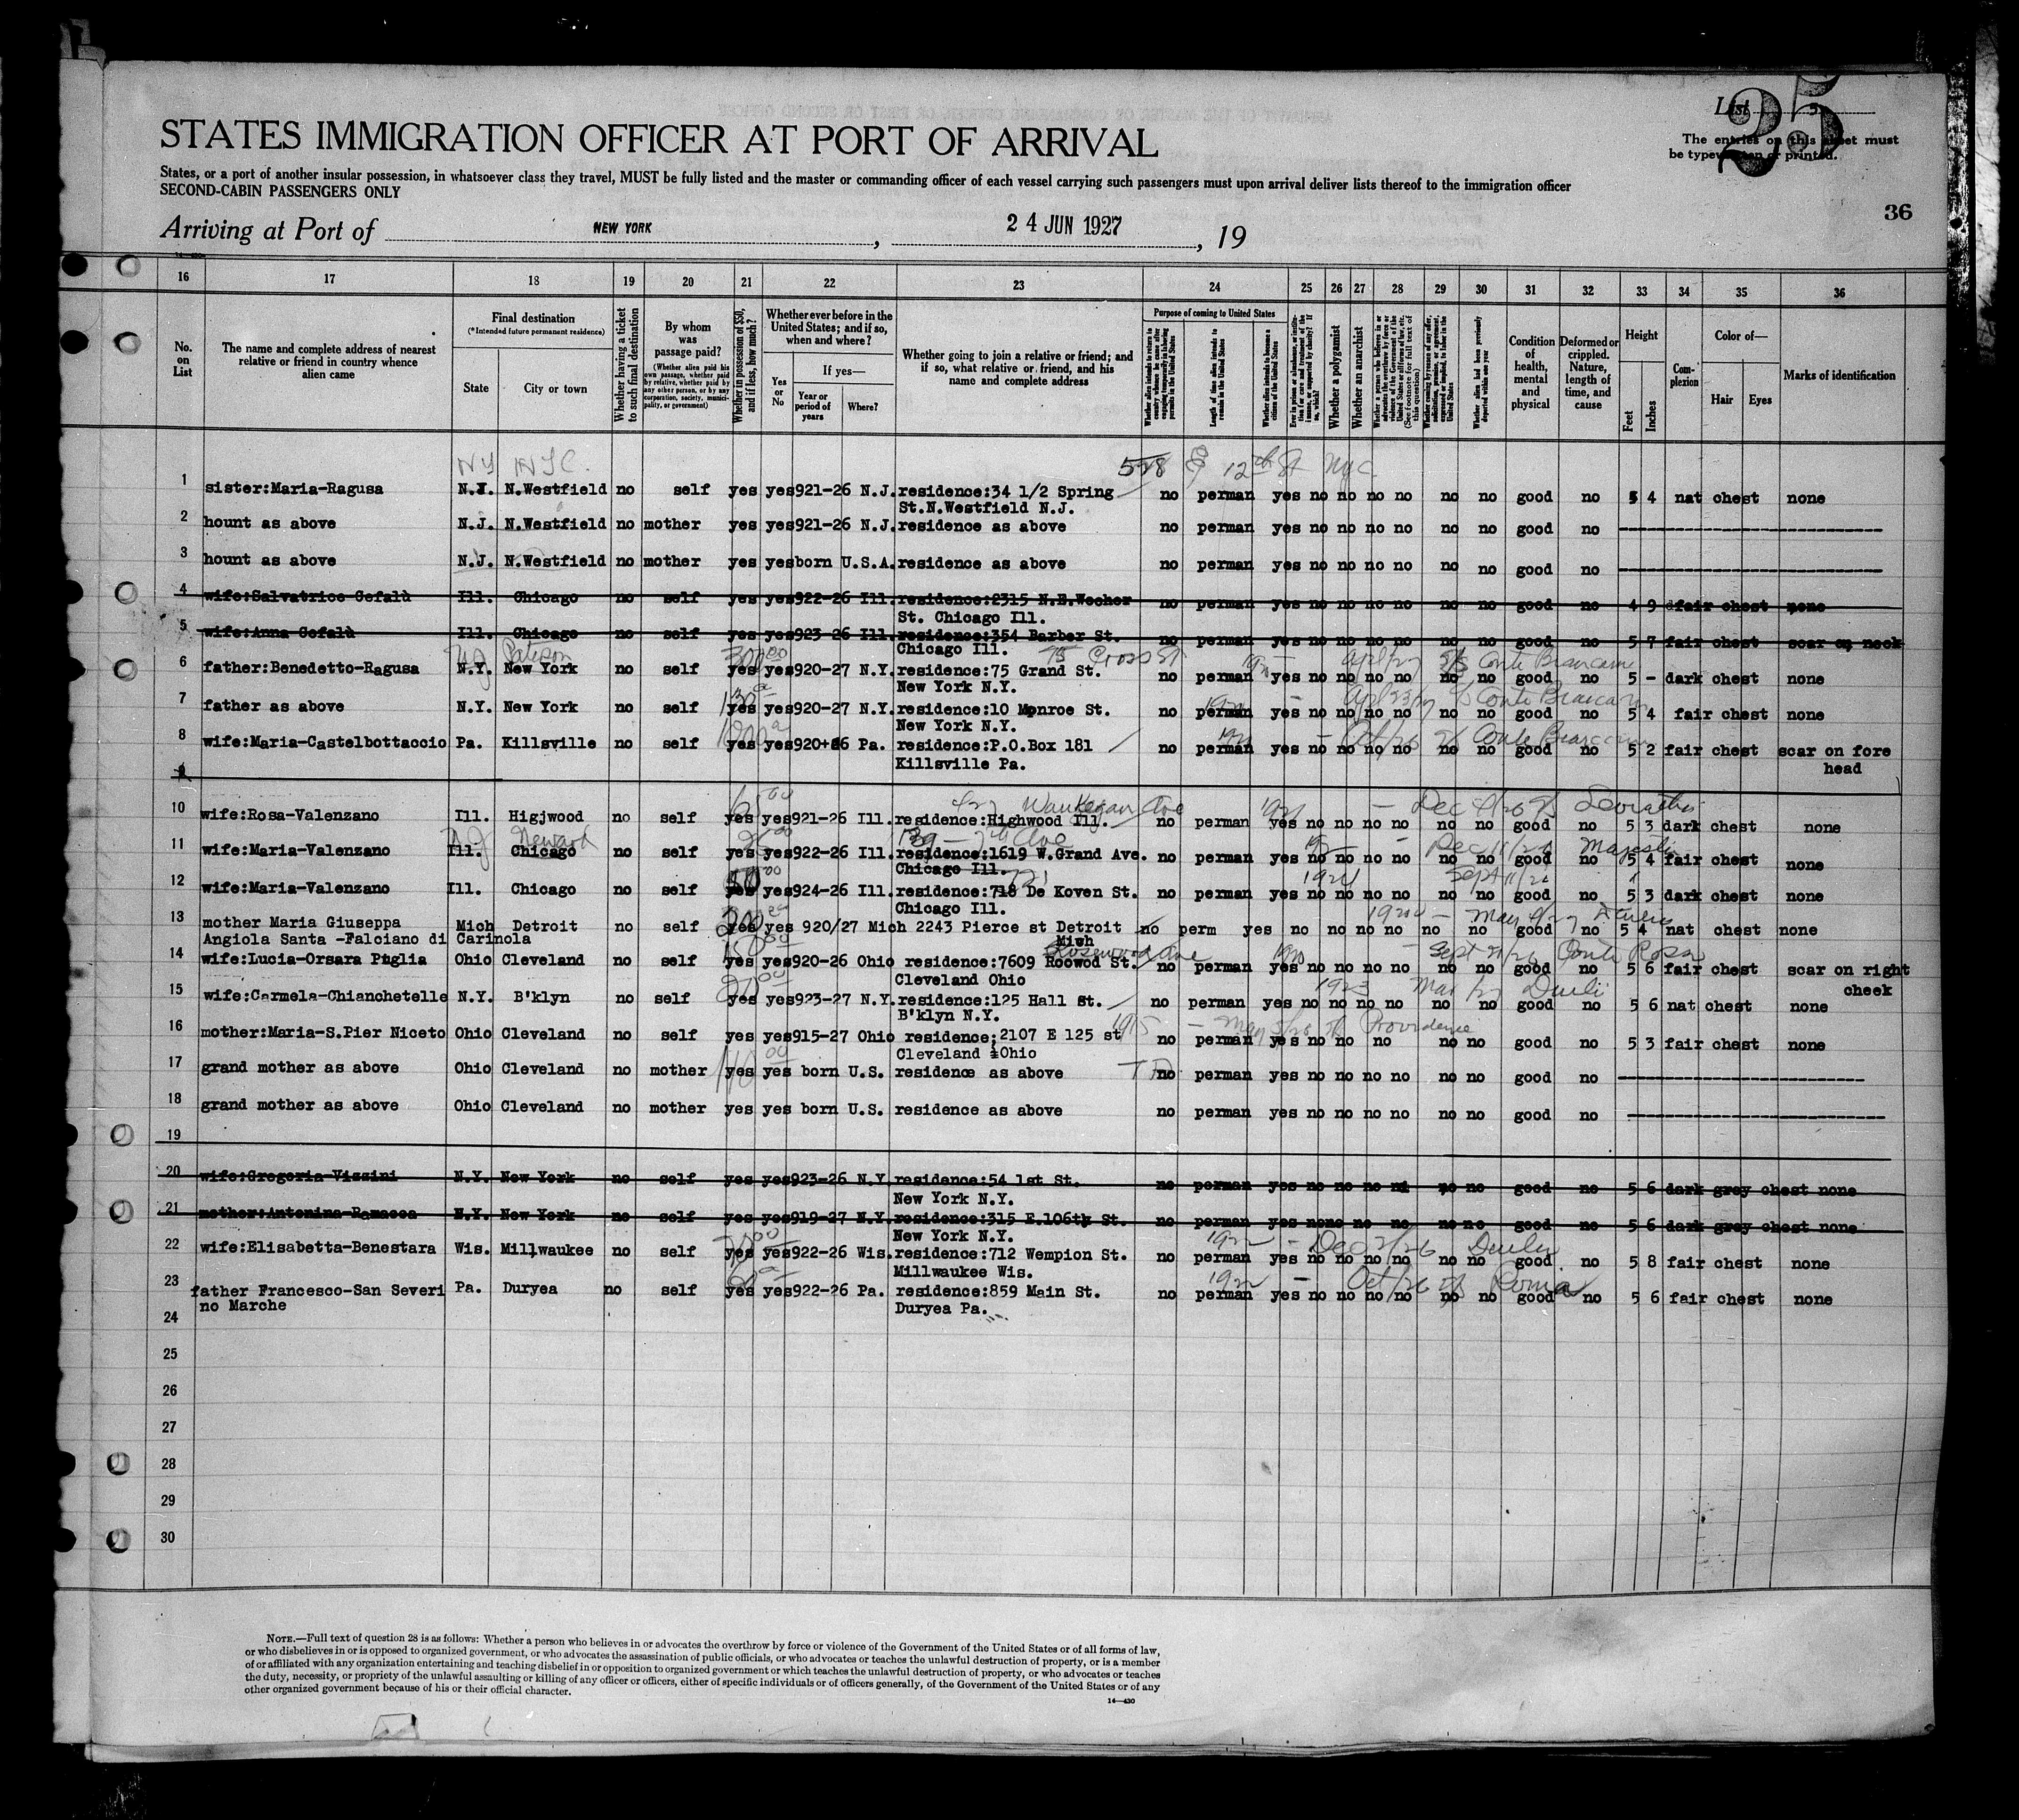 List 5
25
The entries on this sheet must
be typewritten or printed.
STATES IMMIGRATION OFFICER AT PORT OF ARRIVAL
States, or a port of another insular possession, in whatsoever class they travel, MUST be fully listed and the master or commanding officer of each vessel carrying such passengers must upon arrival deliver lists thereof to the immigration officer
SECOND-CABIN PASSENGERS ONLY
36
Arriving at Port of NEW YORK , 24 JUN 1927 , 19
16 17 18 19 20 21 22 23 24 25 26 27 28 29 30 31 32 33 34 35 36
No. on List
The name and complete address of nearest relative or friend in country whence alien came
Final destination
(*Intended future permanent residence)
State
City or town
Whether having a ticket to such final destination
By whom was passage paid?
(Whether alien paid his own passage, whether paid by relative, whether paid by any other person, or by any corporation, society, municipality, or government)
Whether in possession of $50, and if less, how much?
Whether ever before in the United States; and if so, when and where?
Yes or No
If yes—
Year or period of years
Where?
Whether going to join a relative or friend; and if so, what relative or friend, and his name and complete address
Purpose of coming to United States
Length of time alien intends to remain in the United States
Whether alien intends to become a citizen of the United States
Whether a polygamist
Whether an anarchist
(See footnote for full text of this question)
Condition of health, mental and physical
Deformed or crippled. Nature, length of time, and cause
Height
Feet
Inches
Complexion
Color of—
Hair
Eyes
Marks of identification
NY NYC. 528 E 12th St NYC
1 sister:Maria-Ragusa N.Y. N.Westfield no self yes yes921-26 N.J. residence:34 1/2 Spring no perman yes no no no no no no good no 5 4 nat chest none
St.N.Westfield N.J.
2 hount as above N.J. N.Westfield no mother yes yes921-26 N.J. residence as above no perman yes no no no no no no good no
3 hount as above N.J. N.Westfield no mother yes yesborn U.S.A. residence as above no perman yes no no no no no no good no
4 wife:Salvatrice Cefalù Ill. Chicago no self yes yes922-26 Ill. residence:2315 N.E.Wecher no perman yes no no no no no no good no 4 9 dfair chest none
St. Chicago Ill.
5 wife:Anna Cefalù Ill. Chicago no self yes yes923-26 Ill. residence:354 Barber St. no perman yes no no no no no no good no 5 7 fair chest scar on neck
Chicago Ill.
NJ 300.00 75 Cross St April/27 S/S Conte Biancamano
6 father:Benedetto-Ragusa N.Y. New York no self yes yes920-27 N.Y. residence:75 Grand St. no perman yes no no no no no no good no 5 - dark chest none
New York N.Y.
7 father as above N.Y. New York no self yes yes920-27 N.Y. residence:10 Monroe St. no perman yes no no no no no no good no 5 4 fair chest none
New York N.Y.
8 wife:Maria-Castelbottaccio Pa. Killsville no self yes yes920+26 Pa. residence:P.O.Box 181 no perman yes no no no no no no good no 5 2 fair chest scar on fore
Killsville Pa. head
9
Waukegan Ave
10 wife:Rosa-Valenzano Ill. Higjwood no self yes yes921-26 Ill. residence:Highwood Ill. no perman yes no no no no no no good no 5 3 dark chest none
NJ Newark 139 - 7th Ave Majestic
11 wife:Maria-Valenzano Ill. Chicago no self yes yes922-26 Ill. residence:1619 W.Grand Ave. no perman yes no no no no no no good no 5 4 fair chest none
Chicago Ill.
1924 Sept 11/26
12 wife:Maria-Valenzano Ill. Chicago no self yes yes924-26 Ill. residence:718 De Koven St. no perman yes no no no no no no good no 5 3 dark chest none
Chicago Ill.
13 mother Maria Giuseppa Mich Detroit no self yes yes 920/27 Mich 2243 Pierce st Detroit no perm yes no no no no no no good no 5 4 nat chest none
Angiola Santa -Falciano di Carinola Mich
Rosewood Ave 1920 Conte Rosso
14 wife:Lucia-Orsara Puglia Ohio Cleveland no self yes yes920-26 Ohio residence:7609 Roowod St. no perman yes no no no no no no good no 5 6 fair chest scar on right
Cleveland Ohio cheek
1923 Duilio
15 wife:Carmela-Chianchetelle N.Y. B'klyn no self yes yes923-27 N.Y. residence:125 Hall St. no perman yes no no no no no no good no 5 6 nat chest none
B'klyn N.Y.
1915 Providence
16 mother:Maria-S.Pier Niceto Ohio Cleveland no self yes yes915-27 Ohio residence:2107 E 125 st no perman yes no no no no no good no 5 3 fair chest none
Cleveland Ohio
17 grand mother as above Ohio Cleveland no mother yes yes born U.S. residence as above no perman yes no no no no no no good no
18 grand mother as above Ohio Cleveland no mother yes yes born U.S. residence as above no perman yes no no no no no no good no
19
20 wife:Gregoria-Vizzini N.Y. New York no self yes yes923-26 N.Y. residence:54 1st St. no perman yes no no no no no good no 5 6 dark grey chest none
New York N.Y.
21 mother:Antonina-Ramacca N.Y. New York no self yes yes919-27 N.Y. residence:315 E.106th St. no perman yes nono no no no no good no 5 6 dark grey chest none
New York N.Y.
1922 - Dec 2/26 Duilio
22 wife:Elisabetta-Benestara Wis. Millwaukee no self yes yes922-26 Wis. residence:712 Wempion St. no perman yes no no no no no no good no 5 8 fair chest none
Millwaukee Wis.
1922 - Oct/26 Roma
23 father Francesco-San Severi Pa. Duryea no self yes yes922-26 Pa. residence:859 Main St. no perman yes no no no no no no good no 5 6 fair chest none
no Marche Duryea Pa.
24
25
26
27
28
29
30
NOTE.—Full text of question 28 is as follows: Whether a person who believes in or advocates the overthrow by force or violence of the Government of the United States or of all forms of law,
or who disbelieves in or is opposed to organized government, or who advocates the assassination of public officials, or who advocates or teaches the unlawful destruction of property, or is a member
of or affiliated with any organization entertaining and teaching disbelief in or opposition to organized government or which teaches the unlawful destruction of property, or who advocates or teaches
the duty, necessity, or propriety of the unlawful assaulting or killing of any officer or officers, either of specific individuals or of officers generally, of the Government of the United States or of any
other organized government because of his or their official character.
14—430